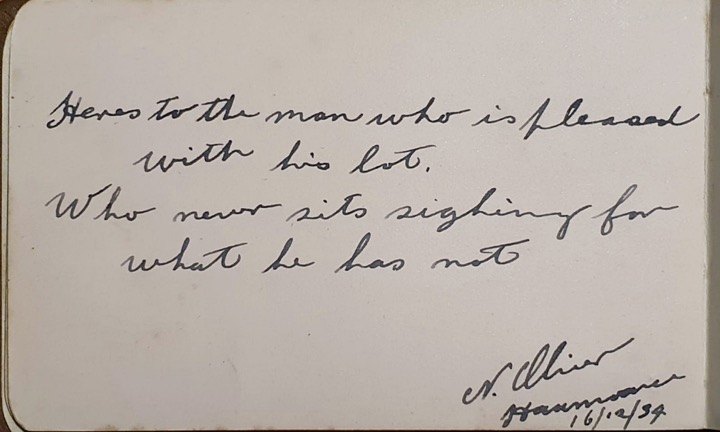 Heres to the man who is pleased
with his lot.
Who never sits sighing for
what he has not
N. Oliver
Haumoana
16/12/34